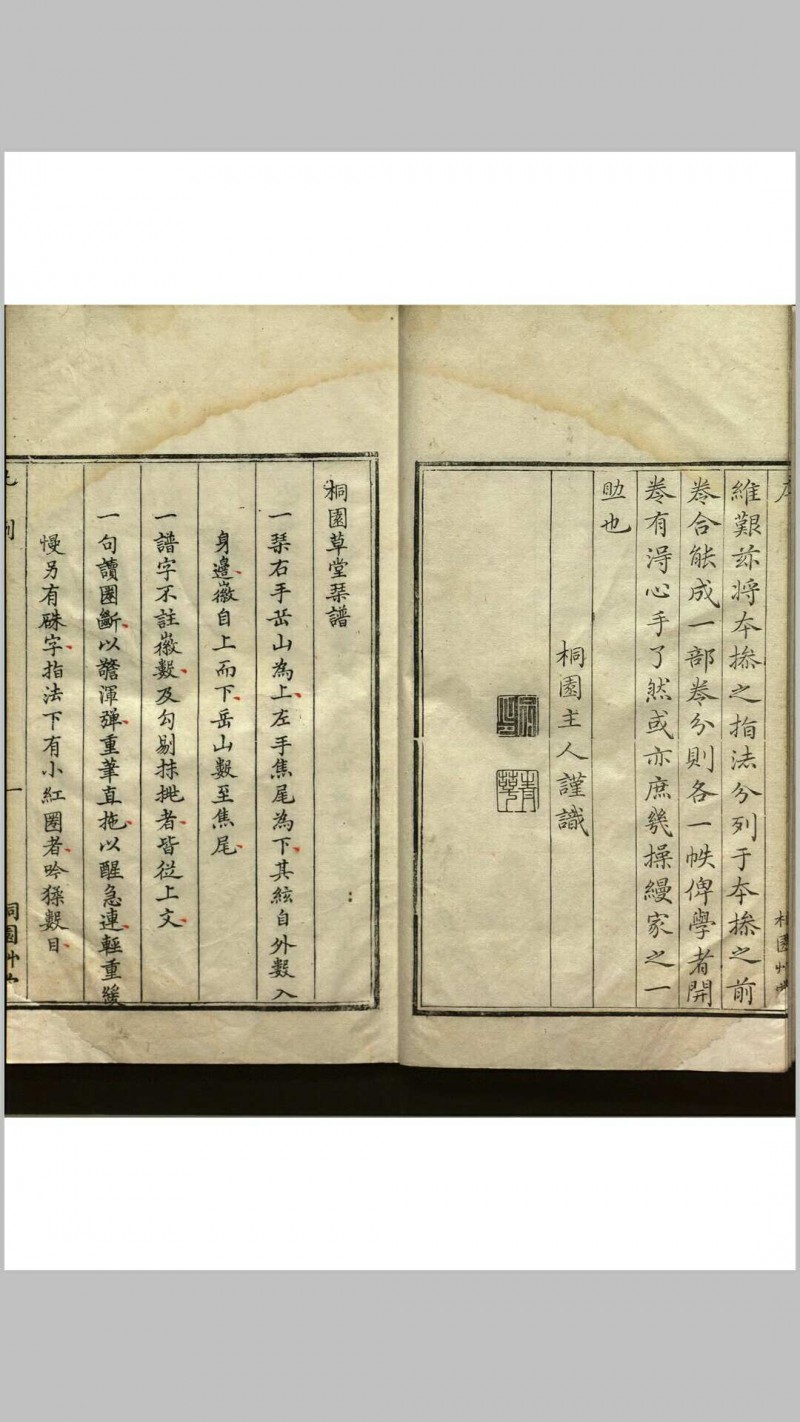 維艱茲將本操之指法分列于本操之前
卷合能成一部卷分則各一帙俾學者開
卷有淂心手了然或亦庶幾操縵家之一
助也
桐園主人謹識
桐園草堂琴譜
一琴右手岳山為上左手焦尾為下其絃自外數入
身邊徽自上而下岳山數至焦尾
一譜字不註徽數及勾剔抹挑者皆從上文
一句讀圈斷以簷渾彈重筆直拖以醒急連輕重緩
慢另有硃字指法下有小紅圈者吟猱數目
一